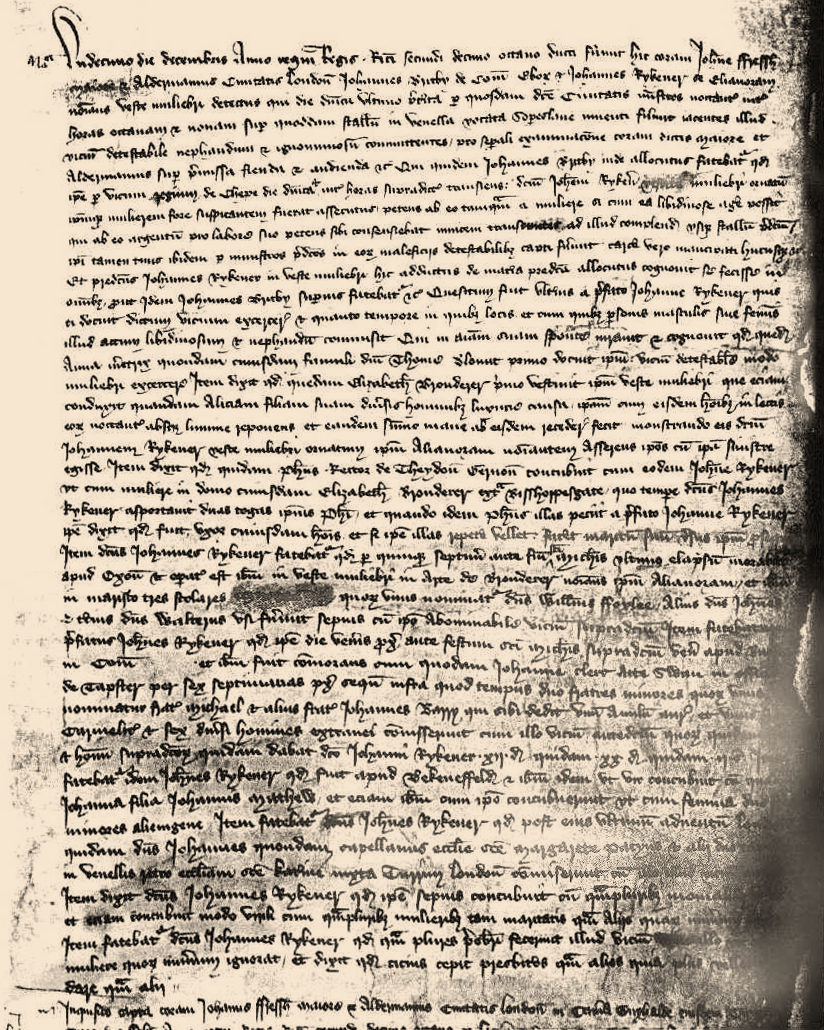 Undecimo die decembris Anno regni Regis Rici secundi decimo octavo ducti fuerunt hic coram Johne ffressh
maiore & Aldermannis Civitatis London Johannes Britby de Com Ebor & Johannes Rykener se Elianoram
noians veste muliebri detectus qui die dnica ultimo pterita p quosdam dce Civitatis mistros noctanter int
horas octavam & nonam sup quoddam stallum in venella vocata Sopereslane inventi fuerunt iacentes illud
vicium detestabile nephandum & ignominiosum comittentes pro sepali examinacone coram dictis maiore et
Aldermannis sup pmissa fienda & audienda &c Qui quidem Johannes Britby inde allocutus fatebatr qd
ipe p vicum regium de Chepe die dnica int horas supradictas transiens dcm Johem Rykener muliebri ornatu
ipm mulierem fore suspicantem fuerat assecutus petens ab eo tanquam a muliere si cum ea libidinose agere possit
qui ab eo argentum pro labore suo petens sibi consenciebat invicem transeuntes ad illud complend usq stallum pdcum
ipi tamen tunc ibidem p ministros pdcos in eor maleficiis detestabilib capti fuerunt carceri vero mancipati hucusq
Et predcus Johannes Rykener in veste muliebri hic adductus de matia predca allocutus cognovit se fecisse in
omib prout idem Johannes Britby supius fatebatr &c Quesitum fuit ulterius a pfato Johanne Rykener quis
ei docuit dictum vicium exercere & quanto tempore in quib locis et cum quib psonis masculis sive femis
illud actum libidinosum & nephandum comisit Qui in aiam suam sponte iuravit & cognovit qd quedam
Anna meretrix quondam cuiusdam famuli dni Thome Blount primo docuit ipm vicium detestabile modo
muliebri exercere Item dixit qd quedam Elizabeth Brouderer prius vestivit ipm veste muliebri que eciam
conduxit quandam Aliciam filiam suam diversis hominib luxurie causa ipam cum eisdem hoib in lectis
eor noctanter absq lumine reponens et eandem summo mane ab eisdem recedere fecit monstrando eis dcum
Johannem Rykener veste muliebri ornatum ipm Alianoram nomantem Asserens ipos cum ipa sinistre
egisse Item dixit qd quidam Phus Rector de Theydon Gernon concubuit cum eodem Johne Rykener
ut cum muliere in domo cuiusdam Elizabeth Brouderer extra Bisshoppesgate quo tempe dcus Johannes
Rykener asportavit duas togas ipius Phi et quando idem Phus illas peciit a pfato Johanne Rykener
ipe dixit qd fuit uxor cuiusdam hois et si ipe illas repetere vellet faceret maritum suum
Item dcus Johannes Rykener fatebatr qd p quinq septim ante fm sci michis ultimo elapsum morabatr
apud Oxon & opatus est ibm in veste muliebri in Arte de Brouderer noians ipm Alianoram et ibm
in maristo tres scolares quor unus nominatr dns Willms ffoxlee Alius dns Johnes
& tcius dns Walterus usi fuerunt sepius cum ipo Abominabile vicium supradcum Item fatebatr
pfatus Johnes Rykener qd ipe die veneris px ante festum sci michis supradcum venit apud
in Com et ibm fuit comorans cum quodam Johanne clerc atte Swan in officio
de Tapster per sex septimanas px sequent infra quod tempus duo fratres minores quor unus
nominatur frat michael & alius frat Johannes Barry qui sibi dedit unum Anulum aur et unus
Carmelit & sex divsi homines extranei comiserunt cum illo vicium antedcum quor quidem
& hoim supradcor quidam dabat dco Johanni Rykener xii d quidam xx d quidam ii s
fatebatr idem Johnes Rykener qd fuit apud Bekenesfeld & ibm idem ut vir concubuit cum quadam
Johanna filia Johannis Mathew et eciam ibm cum ipo concubuerunt ut cum femina duo
minores alienigene Item fatebatr dcus Johnes Rykener qd post eius ultimum adventum
quidam dns Johannes quondam capellanus ecclie sce margarete Patyns & alii duo
in venellis retro eccliam sce katine iuxta Turrim London comiserunt cum
Item dixit dcus Johannes Rykener qd ipe sepius concubuit cum qmplurib monialib
et eciam concubuit modo virili cum qmplurib mulierib tam maritatis qm Aliis quor
Item fatebatr dcus Johannes Rykener qd qm plures psbri fecerunt illud vicium
muliere quor numerum ignorat et dixit qd cicius cepit presbiteros qm alios quia plus
dare qm alii
Inquisicio capta coram Johanne ffressh maiore & Aldermannis Civitatis London in Camera Guyhalde eiusdem